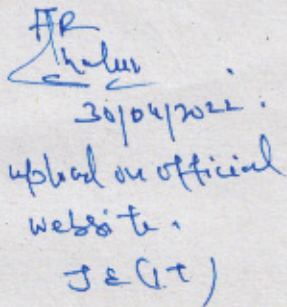 30/04/2022.
upload on official
website.
JE(I.T)